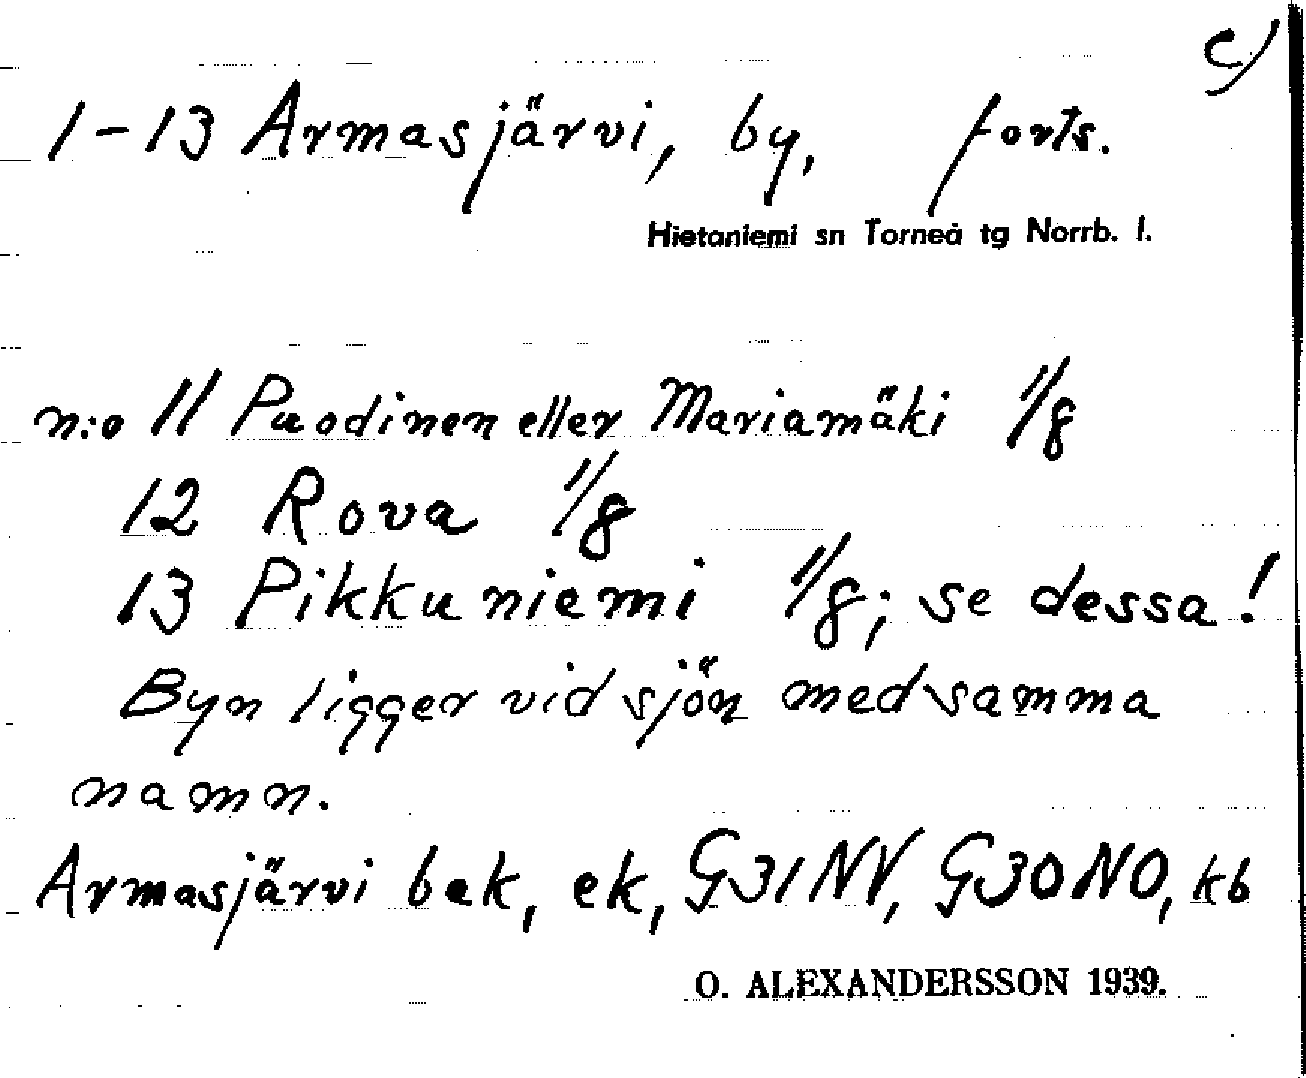 c)
1-13 Armasjärvi, by, forts.
Hietaniemi sn Torneå tg Norrb. l.
n:o 11 Puodinen eller Mariamäki 1/8
12 Rova 1/8
13 Pikkuniemi 1/8; se dessa!
Byn ligger vid sjön med samma
namn.
Armasjärvi bek, ek, G31NV, G30NO, kb
O. ALEXANDERSSON 1939.